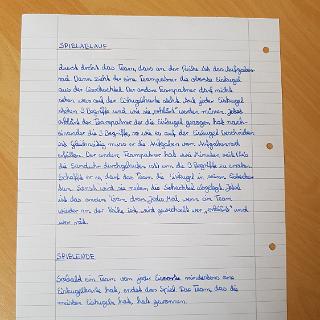 SPIELABLAUF
Zuerst dreht das Team, dass an der Reihe ist das Aufgaben-
rad. Dann zieht der eine Teampartner die oberste Eiskugel
aus der Eisschachtel. Der andere Teampartner darf nicht
sehen was auf der Eiskugelkarte steht. Auf jeder Eiskugel
stehen 3 Begriffe und wie sie erklärt werden müssen. Jetzt
erklärt der Teampartner der die Eiskugel gezogen hat nach-
einander die 3 Begriffe, so wie es auf der Eiskugel
Gleichzeitig muss er die Aufgaben vom Aufgabenrad
erfüllen. Der andere Teampartner hat eine Minute Zeit (bis
die Sanduhr durchgelaufen ist) um die 3 Begriffe zu erraten.
Schafft er es, darf das Team die Eiskugel in seinen Eisbecher
tun. Sonst wird sie neben die Schachtel abgelegt. Jetzt
ist das andere Team dran. Jedes Mal, wenn ein Team
wieder an der Reihe ist, wird gewechselt wer "erklärt" und
wer rät.
SPIELENDE
Sobald ein Team von jeder mindestens eine
Eiskugelkarte hat, endet das Spiel. Das Team, das die
meisten Eiskugeln hat, hat gewonnen.